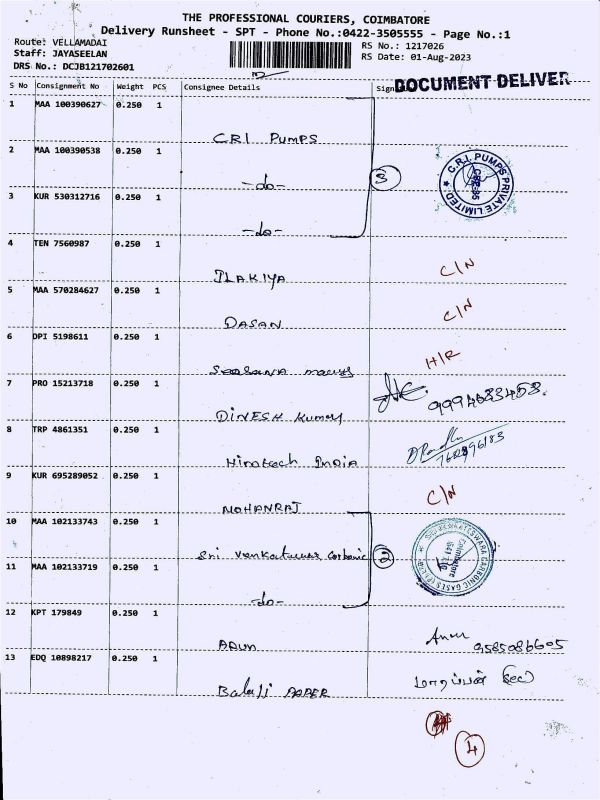 THE PROFESSIONAL COURIERS, COIMBATORE
Delivery Runsheet - SPT - Phone No.:0422-3505555 - Page No.:1
Route: VELLAMADAI
RS No.: 1217026
Staff: JAYASEELAN
RS Date: 01-Aug-2023
DRS No.: DCJB121702601
DOCUMENT DELIVER
S No Consignment No Weight PCS Consignee Details Sign
1 MAA 100390627 0.250 1
CRI PUMPS
2 MAA 100390538 0.250 1
-do-
3
C.R.I. PUMPS PRIVATE LIMITED
3 KUR 530312716 0.250 1
-do-
4 TEN 7560987 0.250 1
ILAKIYA C/N
5 MAA 570284627 0.250 1
DASAN C/N
6 DPI 5198611 0.250 1
H/R
7 PRO 15213718 0.250 1
DINESH Kumar
8 TRP 4861351 0.250 1
Hinotech INDIA
9 KUR 695289052 0.250 1
MOHANRAJ C/N
10 MAA 102133743 0.250 1
Sri Venkateswara Carbonic
2
SRI VENKATESWARA CARBONIC GASES
Coimbatore
11 MAA 102133719 0.250 1
-do-
12 KPT 179849 0.250 1
ARUN Arun 9585086605
13 EDQ 10898217 0.250 1
Balaji PAPER மாரப்பன்
4